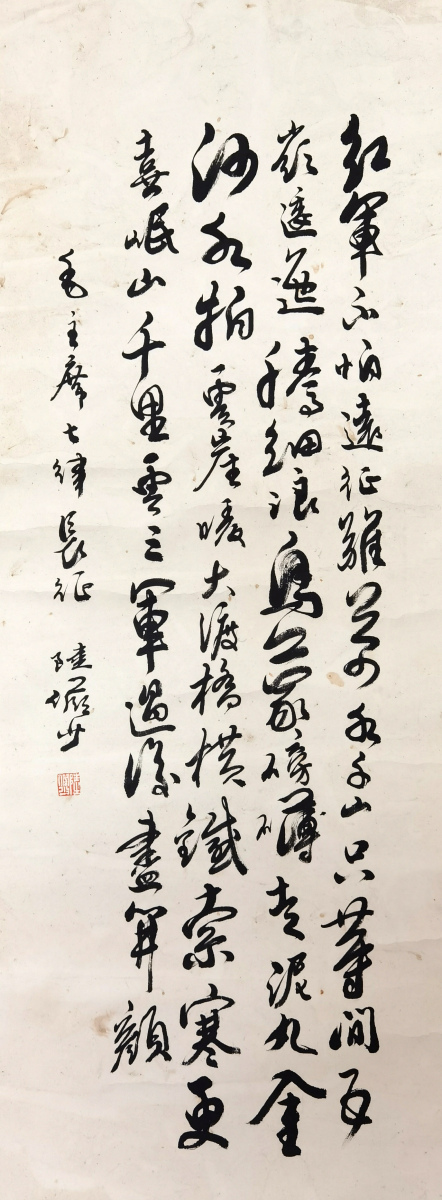 紅軍不怕遠征難萬水千山只等閒五
嶺逶迤騰細浪烏蒙磅礴走泥丸金
沙水拍雲崖暖大渡橋橫鐵索寒更
喜岷山千里雪三軍過後盡開顏
毛主席七律長征 陸儼少